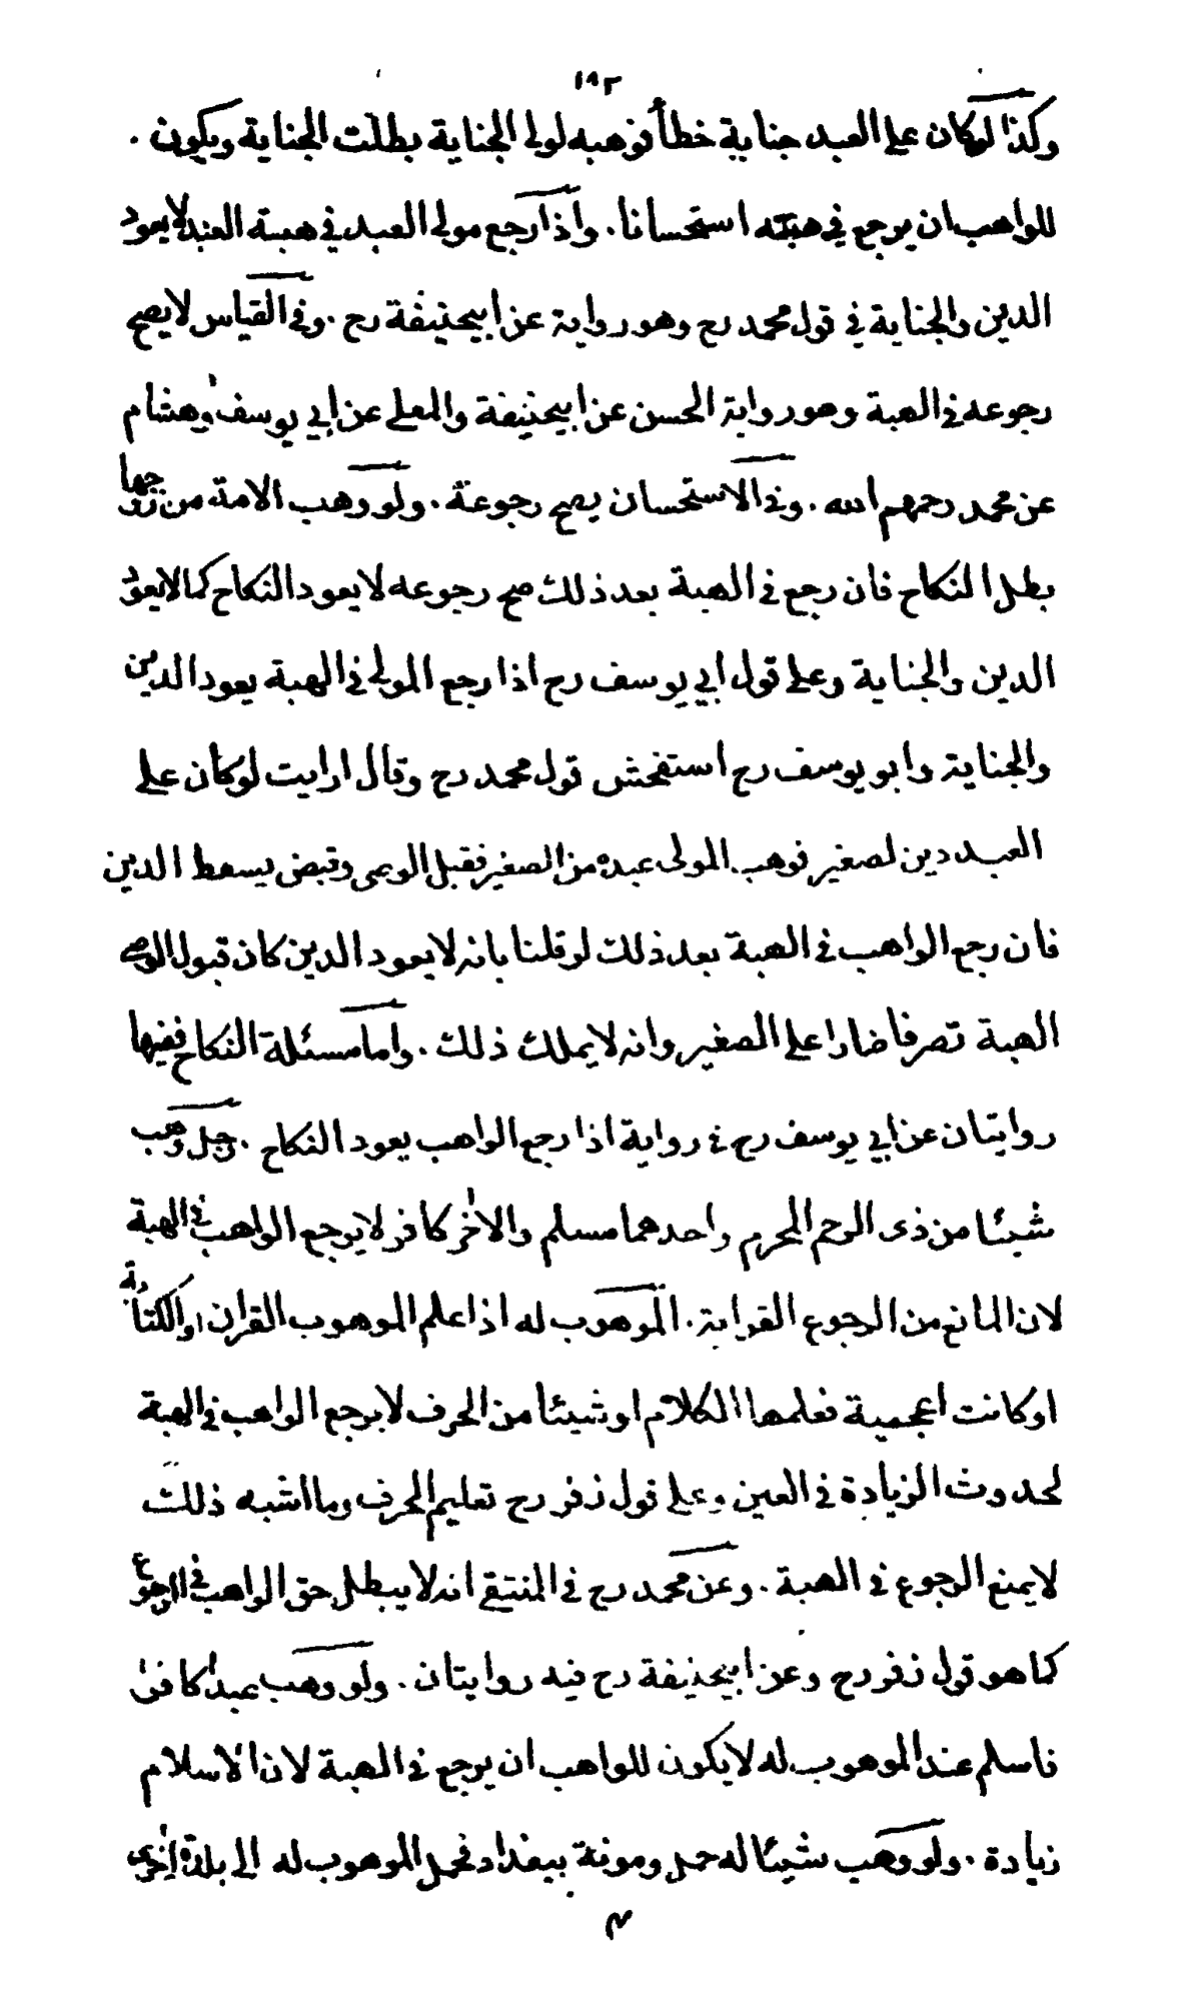 ١٩٢
وكذا لو كان على العبد جناية خطأ فوهبه لولى الجناية بطلت الجناية ويكون .
للواهب ان يرجع في هبته استحسانا . واذا رجع مولى العبد في هبة العبد لا يعود
الدين والجناية في قول محمد رح وهو رواية عن ابيحنيفة رح . وفى القياس لا يصح
رجوعه فى الهبة وهو رواية الحسن عن ابيحنيفة والمعلى عن ابي يوسف وهشام
عن محمد رحمهم الله . وفى الاستحسان يصح رجوعة . ولو وهب الامة من زوجها
بطل النكاح فان رجع فى الهبة بعد ذلك صح رجوعه لا يعود النكاح كما لا يعود
الدين والجناية وعلى قول ابي يوسف رح اذا رجع المولى فى الهبة يعود الدين
والجناية وابو يوسف رح استفحش قول محمد رح وقال ارايت لو كان على
العبد دين لصغير فوهب المولى عبده من الصغير فقبل الوصى وقبض يسقط الدين
فان رجع الواهب فى الهبة بعد ذلك لو قلنا بانه لا يعود الدين كان قبول الوصى
الهبة تصرفا ضارا على الصغير وانه لا يملك ذلك . واما مسئلة النكاح ففيها
روايتان عن ابي يوسف رح فى رواية اذا رجع الواهب يعود النكاح . رجل وهب
شيئا من ذى الرحم المحرم واحدهما مسلم والاخر كافر لا يرجع الواهب فى الهبة
لان المانع من الرجوع القرابة . الموهوب له اذا علم الموهوب القران او الكتابة
او كانت اعجمية فعلمها الكلام او شيئا من الحرف لا يرجع الواهب فى الهبة
لحدوث الزيادة فى العين وعلى قول زفر رح تعليم الحرف وما اشبه ذلك
لا يمنع الرجوع فى الهبة . وعن محمد رح فى المنتقى انه لا يبطل حق الواهب فى الرجوع
كما هو قول زفر رح وعن ابيحنيفة رح فيه روايتان . ولو وهب عبدا كافرا
فاسلم عند الموهوب له لا يكون للواهب ان يرجع فى الهبة لان الاسلام
زيادة . ولو وهب شيئا له حمل ومونة ببغداد فحمل الموهوب له الى بلدة اخرى